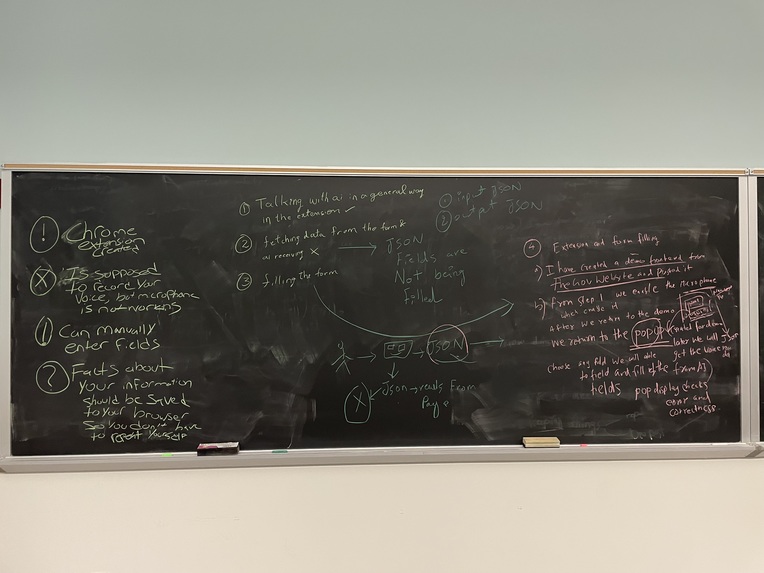 ! Chrome
extension
created
X Is supposed
to record your
voice, but microphone
is not working
! Can manually
enter fields
? Facts about
your information
should be saved
to your browser
so you don't have
to repeat yourself
1 Talking with ai in a general way
in the extension ✓
2 fetching data from the form &
ai receiving X
3 filling the form
JSON
Fields are
Not being
filled
1 input JSON
2 output JSON
JSON
X
Json → reads from
Page
4 Extension and form filling
a) I have created a demo frontend from
the Gov website and
b) From step 1 we enable the microphone
After we return to the demo
we return to the popup
later we will
choose any field we will able get the voice
to field and fill of the form
fields pop display checks
error and
correctness